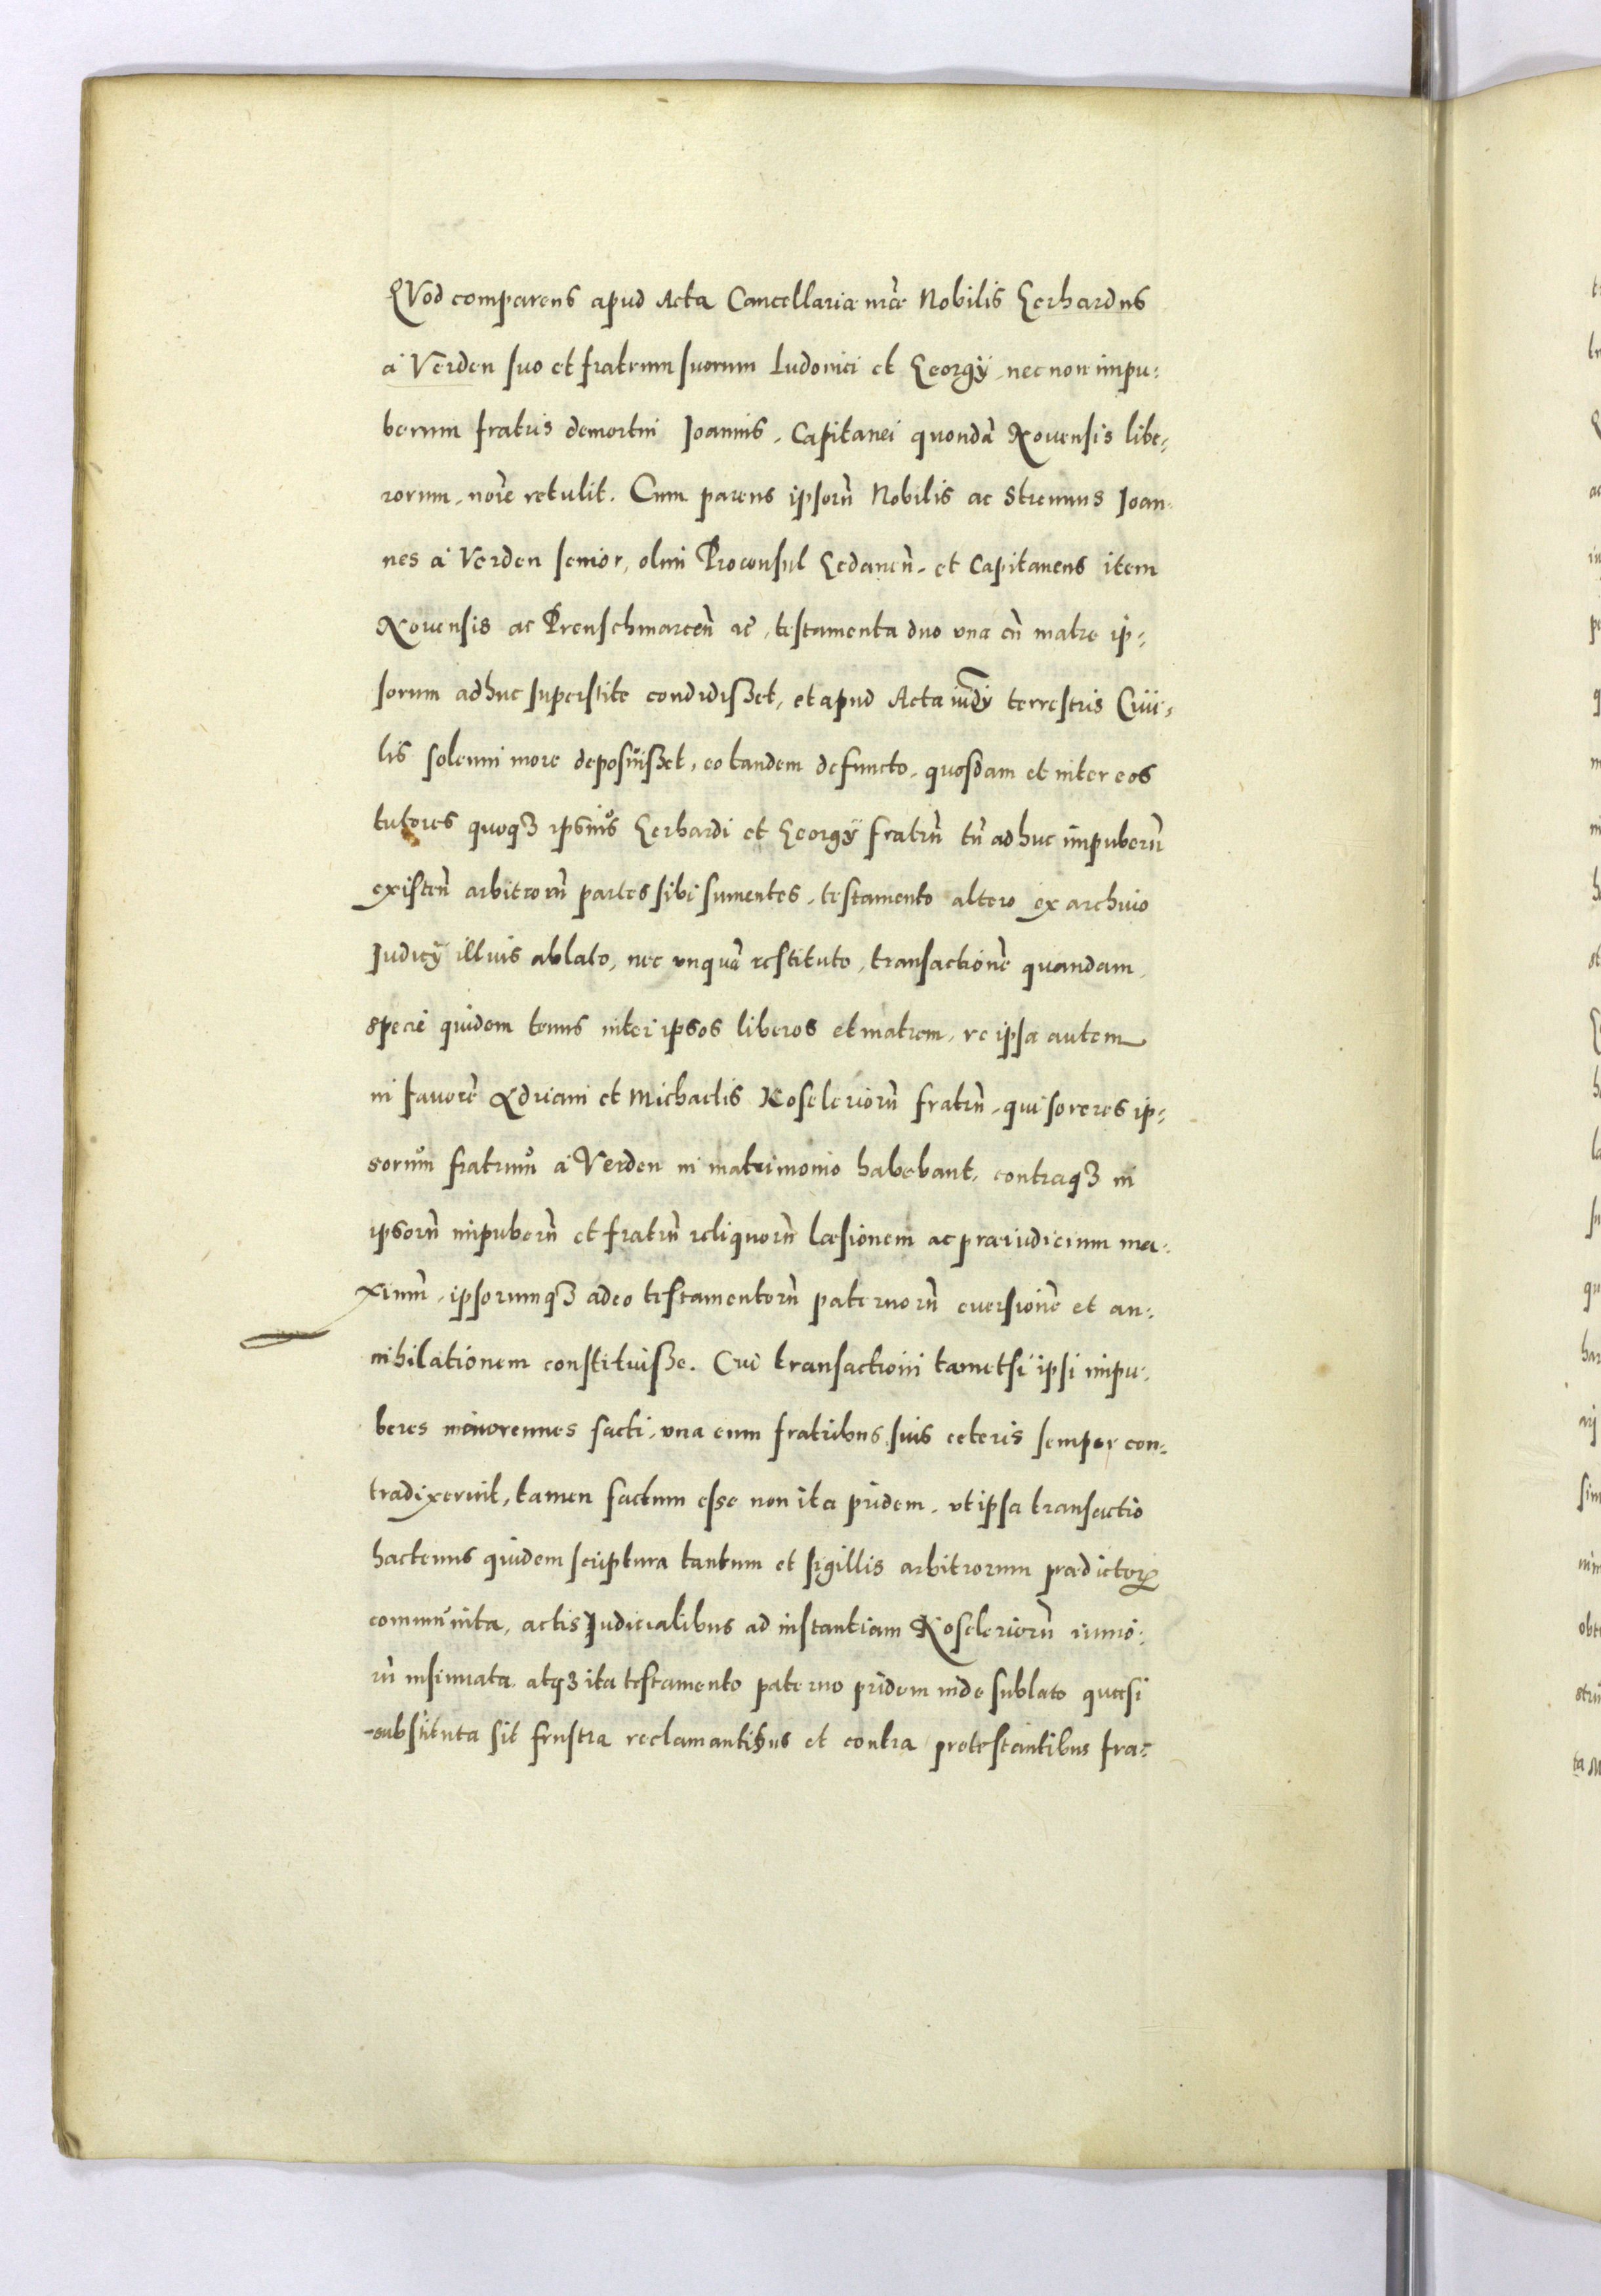 QVod comparens apud Acta Cancellariæ nr̃æ Nobilis Gerhardus
à Verden suo et fratrum suorum Ludouici et Georgÿ, nec non impu:
berum fratris demortui Joannis, Capitanei quondã Nouensis libe,
rorum, noĩe retulit. Cum parens ipsorũ Nobilis ac Strenuus Joan:
nes à Verden senior, olim Proconsul Gedanen̄, et Capitaneus item
Nouensis ac Preuschmarcen̄ &c̄, testamenta duo vna cũ matre ip:
sorum adhuc superstite condidisset, et apud Acta iudÿ terrestris Ciui,
lis solenni more deposuisset, eo tandem defuncto, quosdam et inter eos
tutores quoqꝫ ipsius Gerhardi et Georgÿ fratrũ tũ adhuc impuberũ
existen̄ arbitrorũ partes sibi sumentes, testamento altero ex archiuo
Judicÿ illius ablato, nec vnquã restituto, transactionẽ quandam
specie quidem tenus inter ipsos liberos et matrem, re ipsa autem
in fauorẽ Adriani et Michaelis Koseleriorũ fratrũ, qui sorores ip:
sorum fratrum à Verden in matrimonio habebant, contraqꝫ in
ipsorũ impuberũ et fratrũ reliquorũ læsionem ac præiudicium ma:
ximũ, ipsorumqꝫ adeo testamentorũ paternorũ euersionẽ et an:
nihilationem constituisse. Cui transactioni tametsi ipsi impu:
beres minorennes facti, vna cum fratribus suis ceteris semper con:
tradixerint, tamen factum esse non ita pridem, vt ipsa transactio
hactenus quidem scriptura tantum et sigillis arbitrorum prædictorꝝ
communita, actis Judicialibus ad instantiam Koseleriorũ iunio:
rũ insinuata, atqꝫ ita testamento paterno pridem inde sublato quasi
substituta sit frustra reclamantibus et contra protestantibus fra: